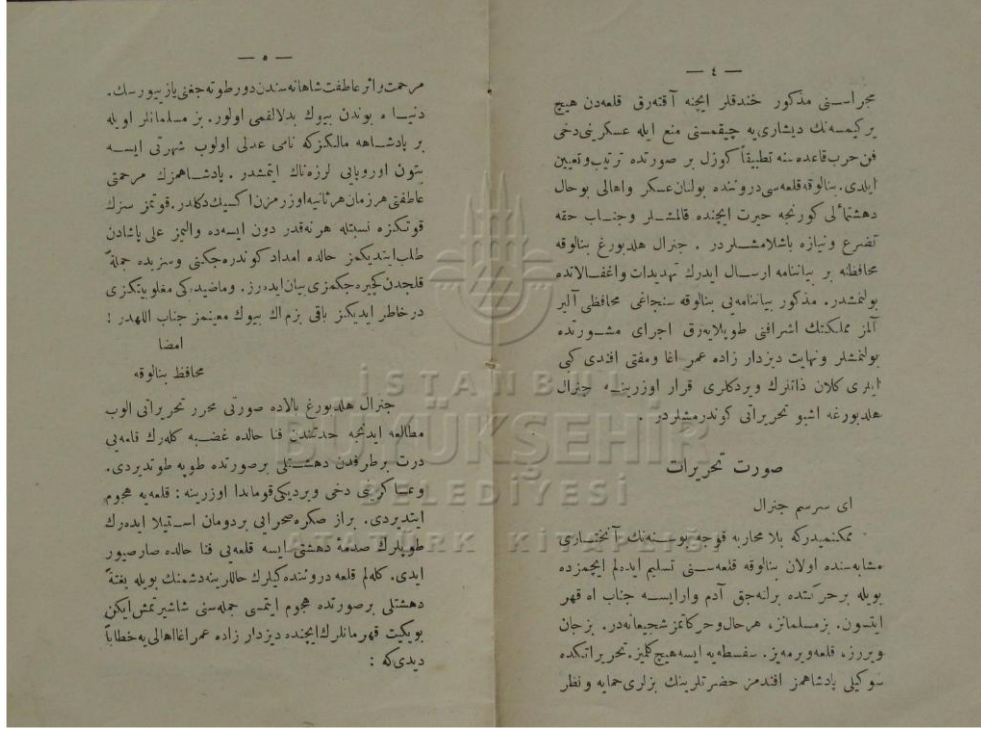 — ٤ —
مجراسنی مذكور خندقلر ایچنه آقته‌رق قلعه‌دن هیچ
بر كیمسه‌نك دیشاری‌یه چیقمسنی منع ایله عسكرینی دخی
فن حرب قاعده‌سنه تطبیقاً كوزل بر صورتده ترتیب و تعیین
ایلدی. بنالوقه قلعه‌سی دروننده بولنان عسكر واهالی بوحال
دهشتمائلی كورنجه حیرت ایچنده قالمشلر وجناب حقه
تضرع ونیازه باشلامشلردر . جنرال هلدبورغ بنالوقه
محافظنه بر بیاننامه ارسال ایدرك تهدیدات واغفالاتده
بولنمشدر. مذكور بیاننامه‌یی بنالوقه سنجاغی محافظی آلیر
آلمز مملكتك اشرافنی طوپلایه‌رق اجرای مشورتده
بولنمشلر ونهایت دیزدار زاده عمر اغا ومفتی افندی كبی
ایلری كلان ذاتلرك ویردكلری قرار اوزرینه جنرال
هلدبورغه اشبو تحریراتی كوندرمشلردر .
صورت تحریرات
ای سرسم جنرال
ممكنمیدركه بلا محاربه قوجه بوسنه‌نك آنختاری
مشابه‌سنده اولان بنالوقه قلعه‌سنی تسلیم ایده‌لم ایچمزده
بویله بر حركتده برانه‌جق آدم وارایسه جناب الله قهر
ایتسون. بز مسلمانز، هرحال وحركاتمز شجیعانه‌در. بز جان
ویررز، قلعه ویرمه‌یز. سفسطه‌یه ایسه هیچ كلمیز. تحریراتكده
سوكیلی پادشاهمز افندمز حضرتلرینك بزلری حمایه و نظر
— ٥ —
مرحمت واثر عاطفت شاهانه‌سندن دور طوته‌جغنی یازییورسك.
دنیاده بوندن بیوك بدلالقمی اولور. بز مسلمانلر اویله
بر پادشاهه مالكزكه نامی عدلی اولوب شهرتی ایسه
بتون اوروپایی لرزه‌ناك ایتمشدر . پادشاهمزك مرحمتی
عاطفتی هر زمان هر ثانیه اوزرمزدن اكسیك دكلدر. قوتمز سزك
قوتكزه نسبتله هر نه‌قدر دون ایسه‌ده والیمز علی پاشادن
طلب ایتدیكمز حالده امداد كوندره‌جكنی وسزیده جملةً
قلجدن كچیره‌جكمزی بیان ایده‌رز. وماضیده‌كی مغلوبیتكزی
درخاطر ایدیكز باقی بزم اك بیوك معینمز جناب اللهدر !
امضا
محافظ بنالوقه
جنرال هلدبورغ بالاده صورتی محرر تحریراتی الوب
مطالعه ایدنجه حدتندن فنا حالده غضبه كله‌رك قلعه‌یی
درت بر طرفدن دهشتلی بر صورتده طوپه طوتدیردی.
وعساكرینی دخی ویردیكی قوماندا اوزرینه : قلعه‌یه هجوم
ایتدیردی. براز صكره صحرایی بر دومان استیلا ایده‌رك
طوپلرك صدمه دهشتی ایسه قلعه‌یی فنا حالده صارصیور
ایدی. كله‌لم قلعه دروننده كیلرك حاللرینه دشمنك بویله بغتةً
دهشتلی بر صورتده هجوم ایتمسی جمله‌سنی شاشیرتمش ایكن
بویكیت قهرمانلرك ایچنده دیزدار زاده عمر اغا اهالی‌یه خطاباً
دیدی‌كه :
İSTANBUL
BÜYÜKŞEHİR
BELEDİYESİ
ATATÜRK KİTAPLIĞI